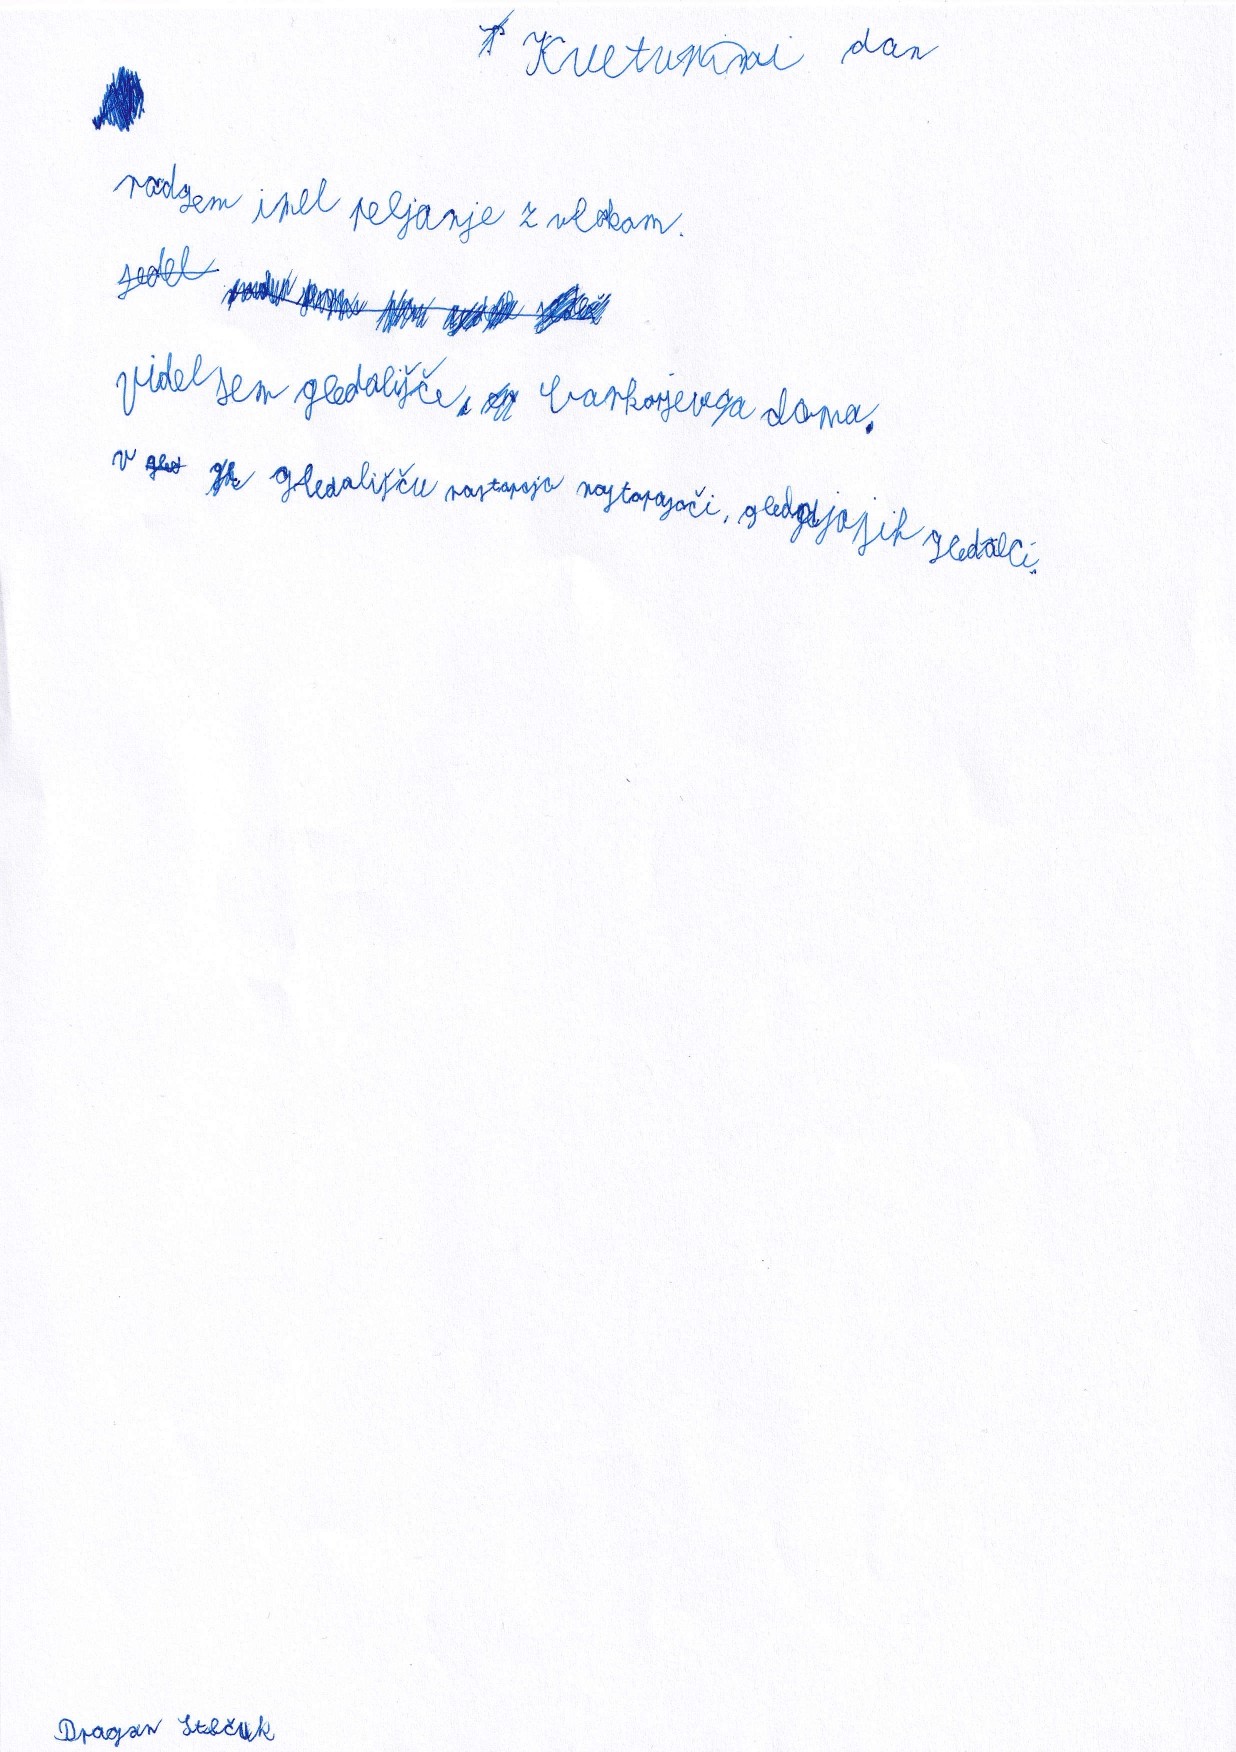 Kueturni dan
radsem imel peljanje z vlakom.
sedel
videl sem gledališče, Cankarjevga doma.
v gledališču nastopajo nastopajoči, gledajo jih gledalci.
Dragan